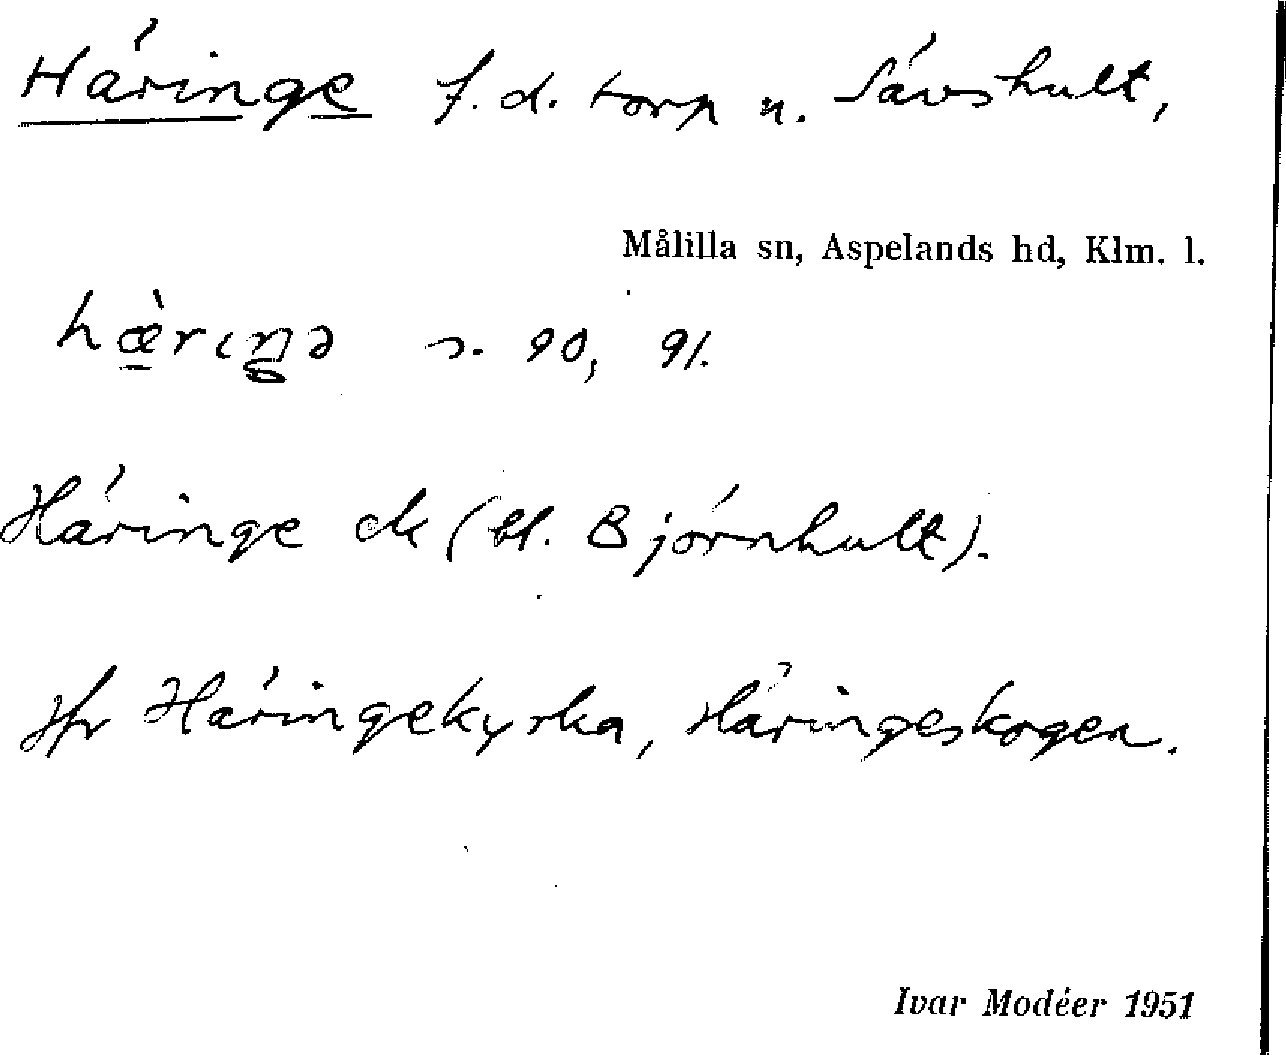 Häringe f. d. torp u. Sävshult,
Målilla sn, Aspelands hd, Klm. l.
hæ̀rıŋə s. 90, 91.
Häringe ek (bl. Björnhult).
Jfr Häringekyrka, Häringeskogen.
Ivar Modéer 1951